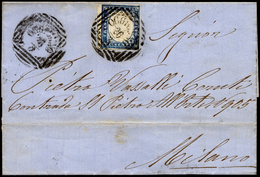 Signor
Pietro Vasalli Comti
Contrada S. Pietro all'Orto 905
Milano